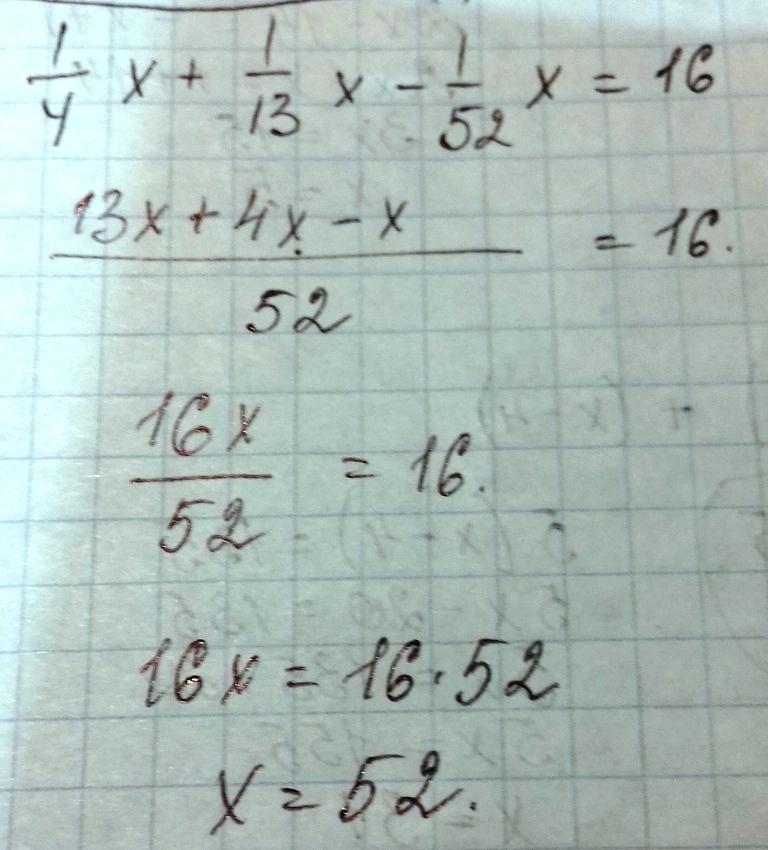 1/4 x + 1/13 x - 1/52 x = 16
(13x + 4x - x)/52 = 16.
16x/52 = 16.
16x = 16·52
x = 52.